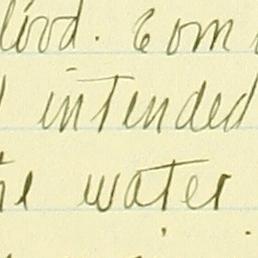 blood. Com
intended
the water